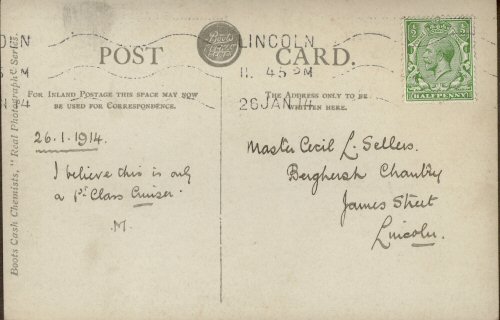 POST CARD.
Boots
LINCOLN
11. 45 PM
26 JAN 14
HALFPENNY
FOR INLAND POSTAGE THIS SPACE MAY NOW
BE USED FOR CORRESPONDENCE.
THE ADDRESS ONLY TO BE
WRITTEN HERE.
26.1.1914.
I believe this is only
a 1st Class Cruiser.
M.
Master Cecil L. Sellers.
Berghersh Chantry
James Street
Lincoln.
Boots Cash Chemists, "Real Photographic Series."